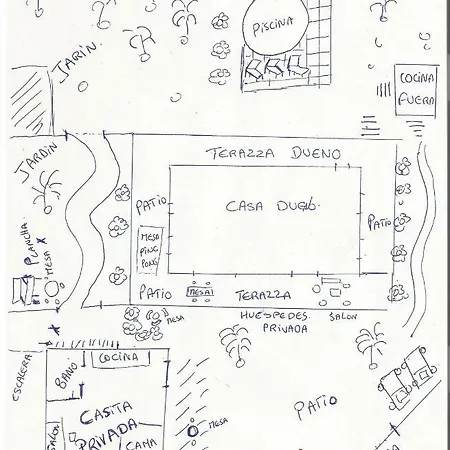 PISCINA
JARIN
COCINA
FUERA
JARDIN
TERAZZA DUENO
PATIO
CASA DUEÑO
PATIO
MESA
PING
PONG
PLANCHA
MESA
PATIO
MESA
TERAZZA
HUESPEDES
PRIVADA
SALON
MESA
ESCALERA
BANO
COCINA
CASITA
PRIVADA
SALON
CAMA
PATIO
MESA